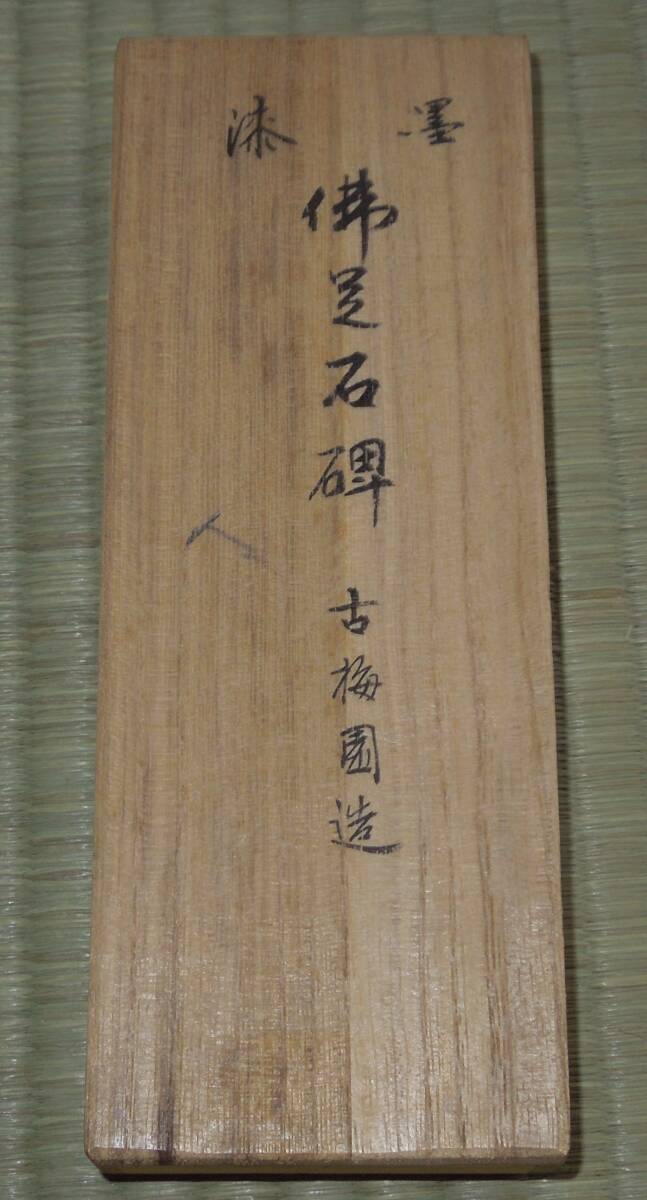 漆墨
佛足石碑
古梅園造
人